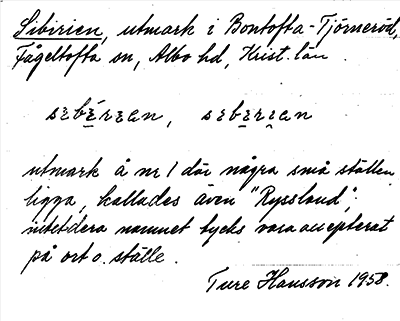 Sibirien, utmark i Bontofta-Tjörneröd,
Fågeltofta sn, Albo hd, Krist. län
sɛbérɛan, sɛberɛan
utmark å nr 1 där några små ställen
ligga, kallades även "Ryssland",
intetdera namnet tycks vara accepterat
på ort o. ställe.
Ture Hansson 1958.